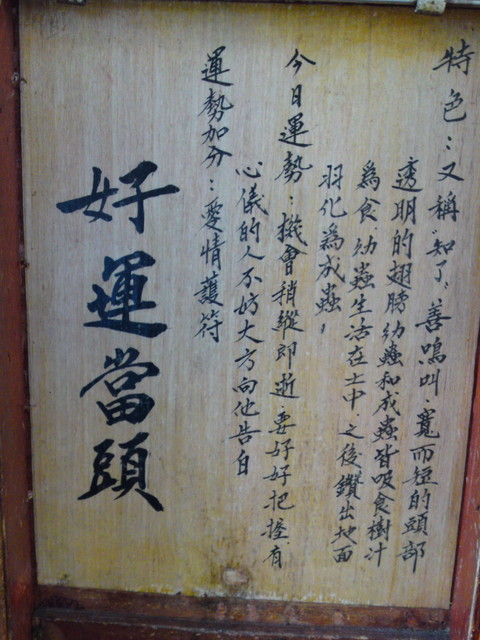 特色：又稱"知了"善鳴叫．寬而短的頭部
透明的翅膀幼蟲和成蟲皆吸食樹汁
為食．幼蟲生活在土中，之後鑽出地面
羽化為成蟲，
今日運勢：機會稍縱即逝．要好好把握．有
心儀的人不妨大方向他告白
運勢加分：愛情護符
好運當頭